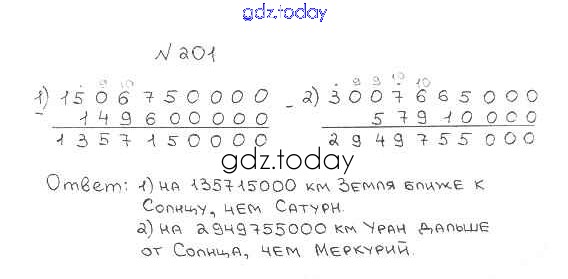 gdz.today
N 201
9 10 9 9 10 10
1) 1506750000 2) 3007665000
- 149600000 - 57910000
1357150000 2949755000
gdz.today
Ответ: 1) на 135715000 км Земля ближе к
Солнцу, чем Сатурн.
2) на 2949755000 км Уран дальше
от Солнца, чем Меркурий.